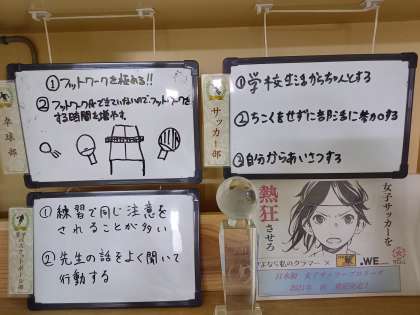 ①フットワークを極める!!
②フットワークができていないので、フットワークを
する時間を増やす。
卓球部
①学校生活からちゃんとする
②ちこくをせずに部活に参加する
③自分からあいさつする
サッカー部
①練習で同じ注意を
されることが多い
②先生の話をよく聞いて
行動する
女子サッカーを
熱狂
させろ
さよなら私のクラマー
×
WE